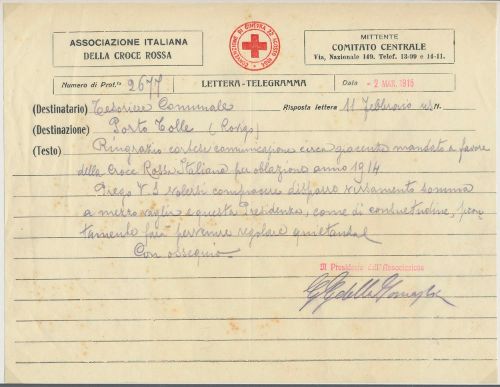 ASSOCIAZIONE ITALIANA
DELLA CROCE ROSSA
CONVENZIONE DI GINEVRA 22 AGOSTO 1864
MITTENTE
COMITATO CENTRALE
Via, Nazionale 149. Telef. 13-99 e 14-11
Numero di Prot.° 2677
LETTERA-TELEGRAMMA
Data - 2 MAR. 1915
(Destinatario) Tesoriere Comunale
Risposta lettera 11 Febbraio
(Destinazione) Porto Tolle (Rovigo)
(Testo) Ringrazio cortese comunicazione circa giacente mandato a favore
della Croce Rossa Italiana per oblazione anno 1914
Prego V. S. volersi compiacere disporre versamento somma
a mezzo vaglia e questa Presidenza, come di consuetudine, pron
tamente farà pervenire regolare quietanza
Con ossequio
Il Presidente dell'Associazione